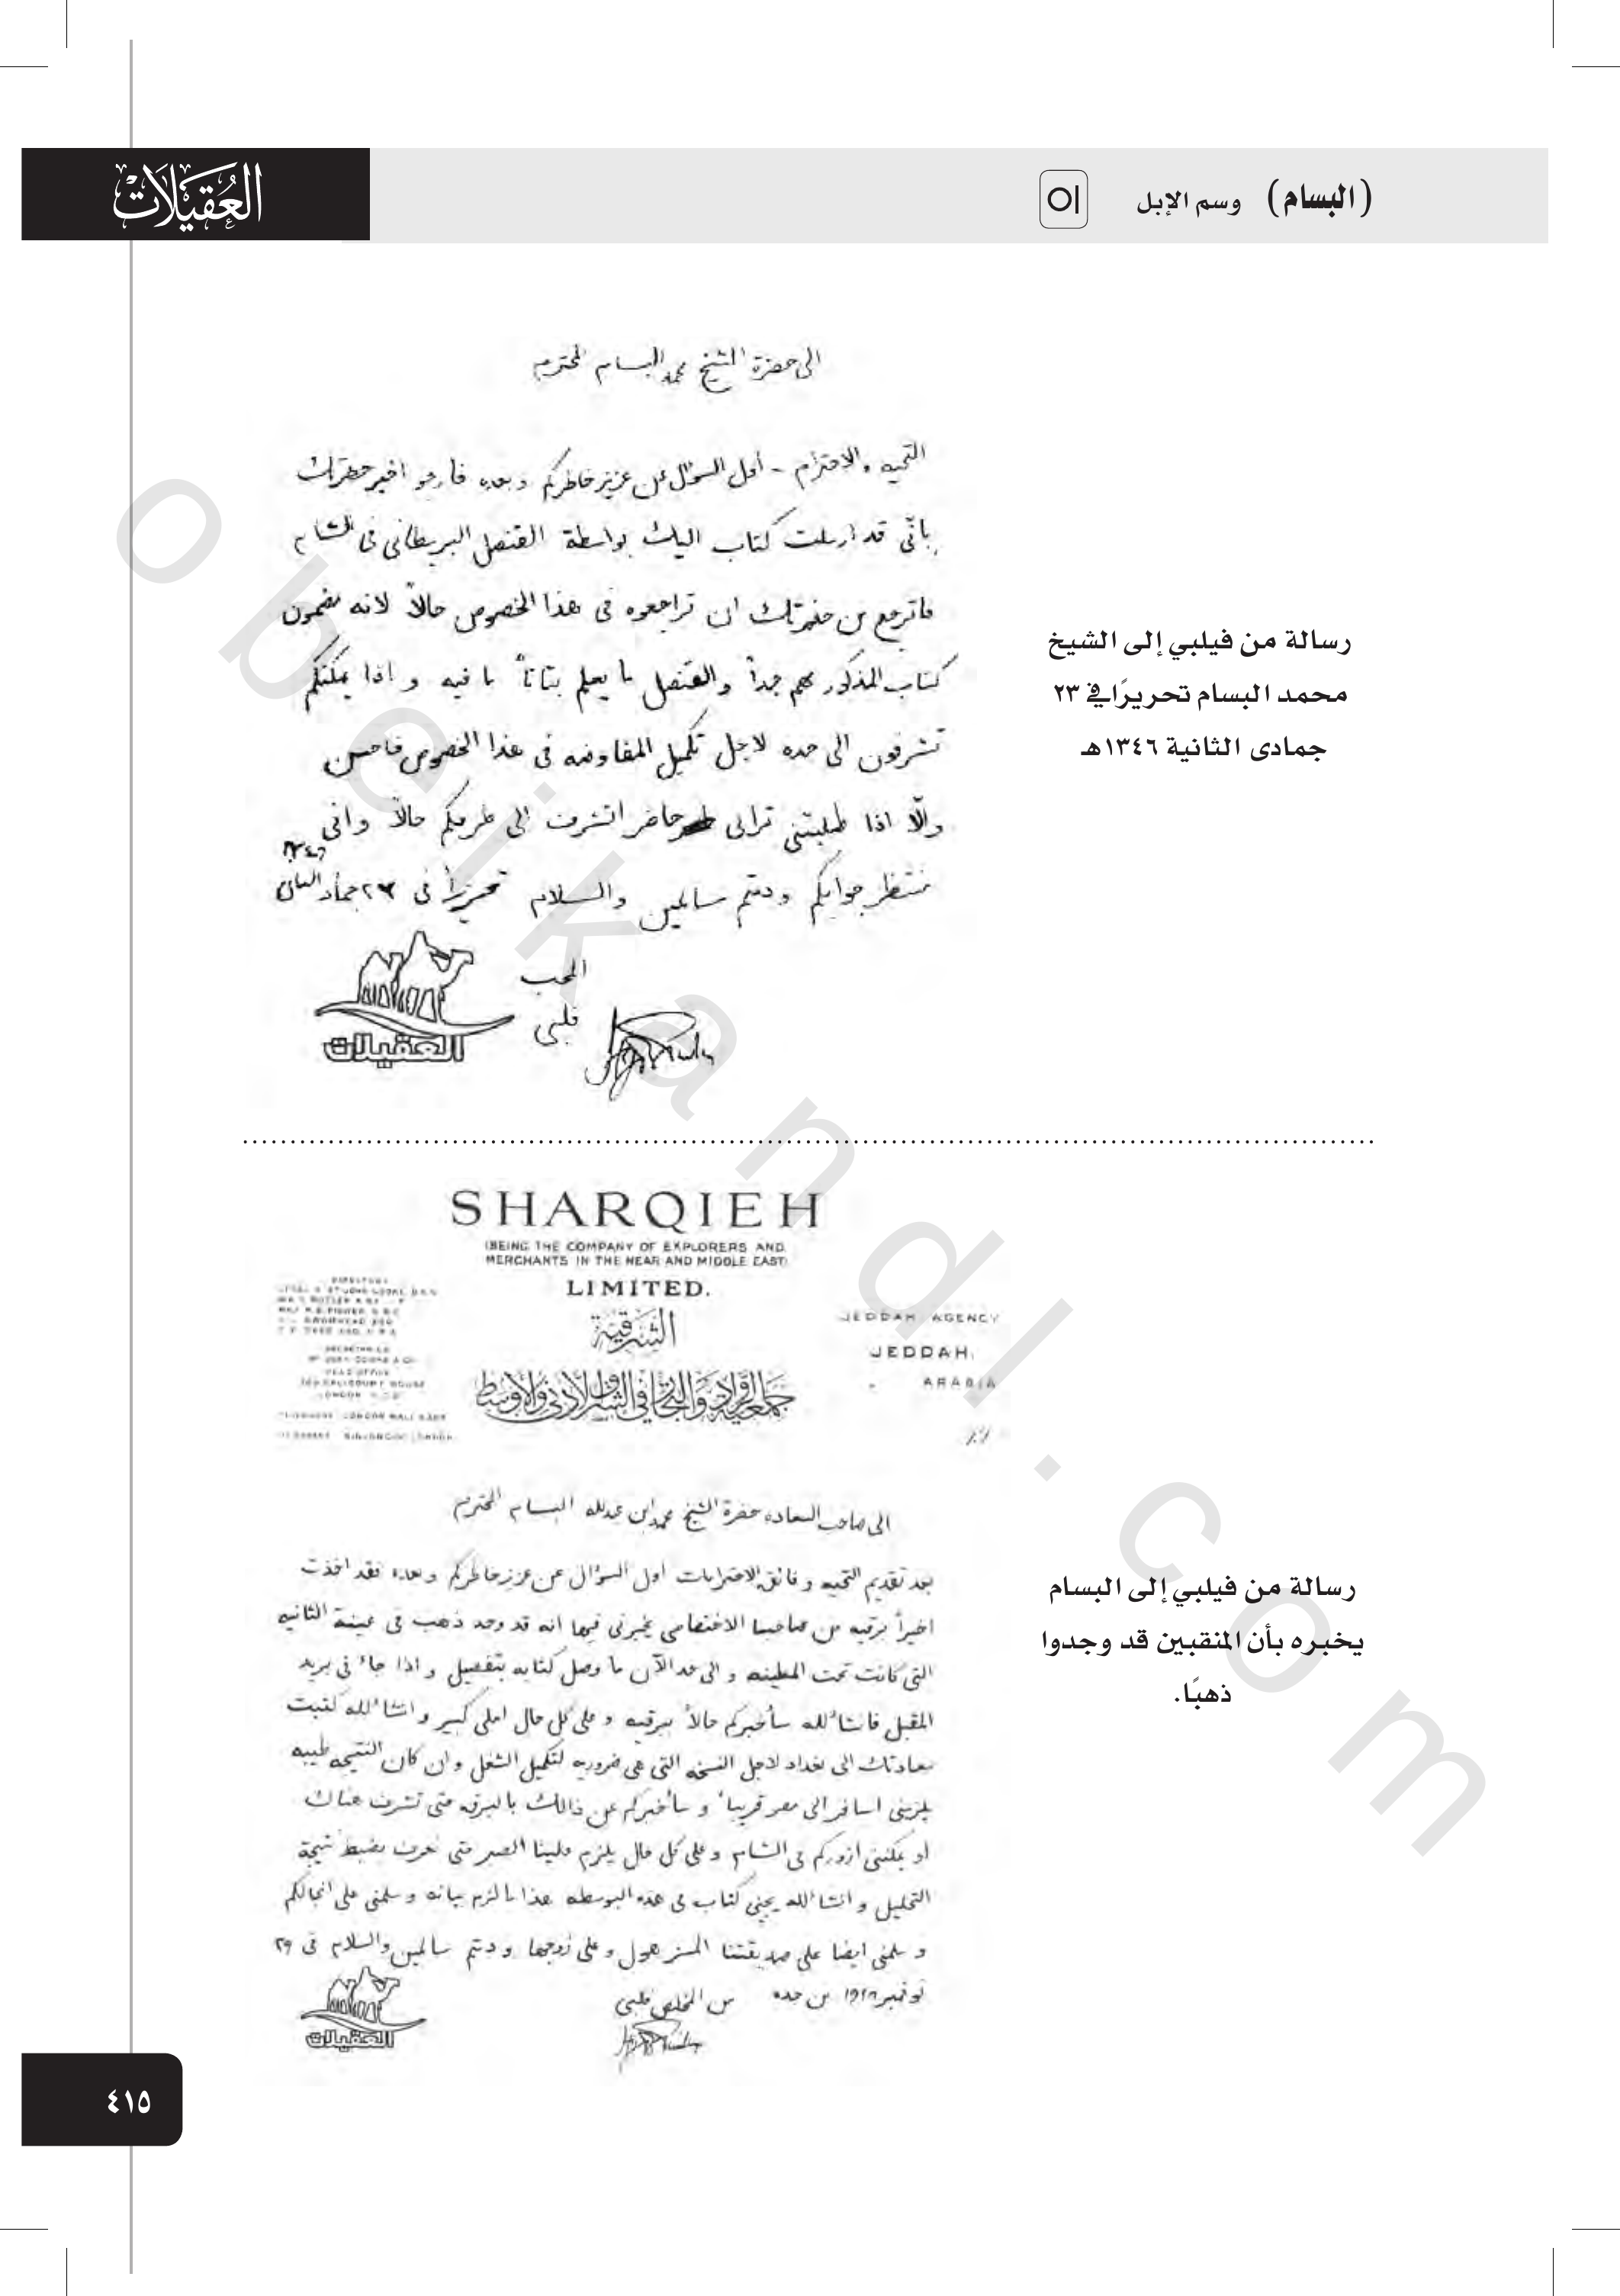 (البسام) وسم الإبل
العقيلات
الى حضرة الشيخ محمد البسام المحترم
التحيه والاحترام - أول السؤال عن عزيز خاطركم وبعده فارجو اخبر حضرتك
بأنّي قد ارسلت كتاب اليك بواسطة القنصل البريطاني في الشام
فاترجع من حضرتك ان تراجعوه في هذا الخصوص حالاً لانه مضمون
كتاب المذكور مهم جداً والقنصل ما يعلم بتاتاً ما فيه واذا يمكنكم
تشرفون الى جده لاجل تكميل المفاوضه في هذا الخصوص فاحسن
والّا اذا طلبتني تراني حاضر اتشرف الى طرفكم حالاً واني
منتظر جوابكم ودمتم سالمين والسلام تحريراً في جماد الثاني
١٣٤٦
المحب
فلبي
العقيلات
رسالة من فيلبي إلى الشيخ
محمد البسام تحريرًا في ٢٣
جمادى الثانية ١٣٤٦هـ
SHARQIEH
(BEING THE COMPANY OF EXPLORERS AND
MERCHANTS IN THE NEAR AND MIDDLE EAST)
LIMITED.
الشرقية
جمعية الرواد والتجار في الشرق الأدنى والأوسط
JEDDAH AGENCY
JEDDAH,
ARABIA
الى صاحب السعاده حضرة الشيخ محمد ابن عبدلله البسام المحترم
بعد تقديم التحيه وفائق الاحترامات اول السؤال عن عزيز خاطركم وبعده فقد اخذت
اخيراً برقيه من صاحبنا الاختصاصي يخبرني فيها انه قد وجد ذهب في عينة الثانيه
التي كانت تحت المطينه والى حد الآن ما وصل كتابه بتفصيل واذا جاء في بريد
المقبل فانشاءلله سأخبركم حالاً ببرقيه وعلى كل حال املي كبير وانشاءلله كتبت
سعادتك الى بغداد لاجل النسخه التي هي ضروريه لتكميل الشغل وان كان النتيجه طيبه
يلزمني اسافر الى مصر قريباً وسأخبركم عن ذالك بالبرق حتى تشرف هناك
او يمكنني ازوركم في الشام وعلى كل حال يلزم علينا الصبر حتى نعرف بضبط نتيجة
التحليل وانشاءلله يجيني كتاب في هذه البوسطه هذا ما لزم بيانه وسلمني على انجالكم
وسلمني ايضا على صديقتنا المسز هول وعلى زوجها ودمتم سالمين والسلام في ٢٩
نوفمبر من جده من المخلص فلبي
العقيلات
رسالة من فيلبي إلى البسام
يخبره بأن المنقبين قد وجدوا
ذهبًا.
٤١٥
obeikandl.com